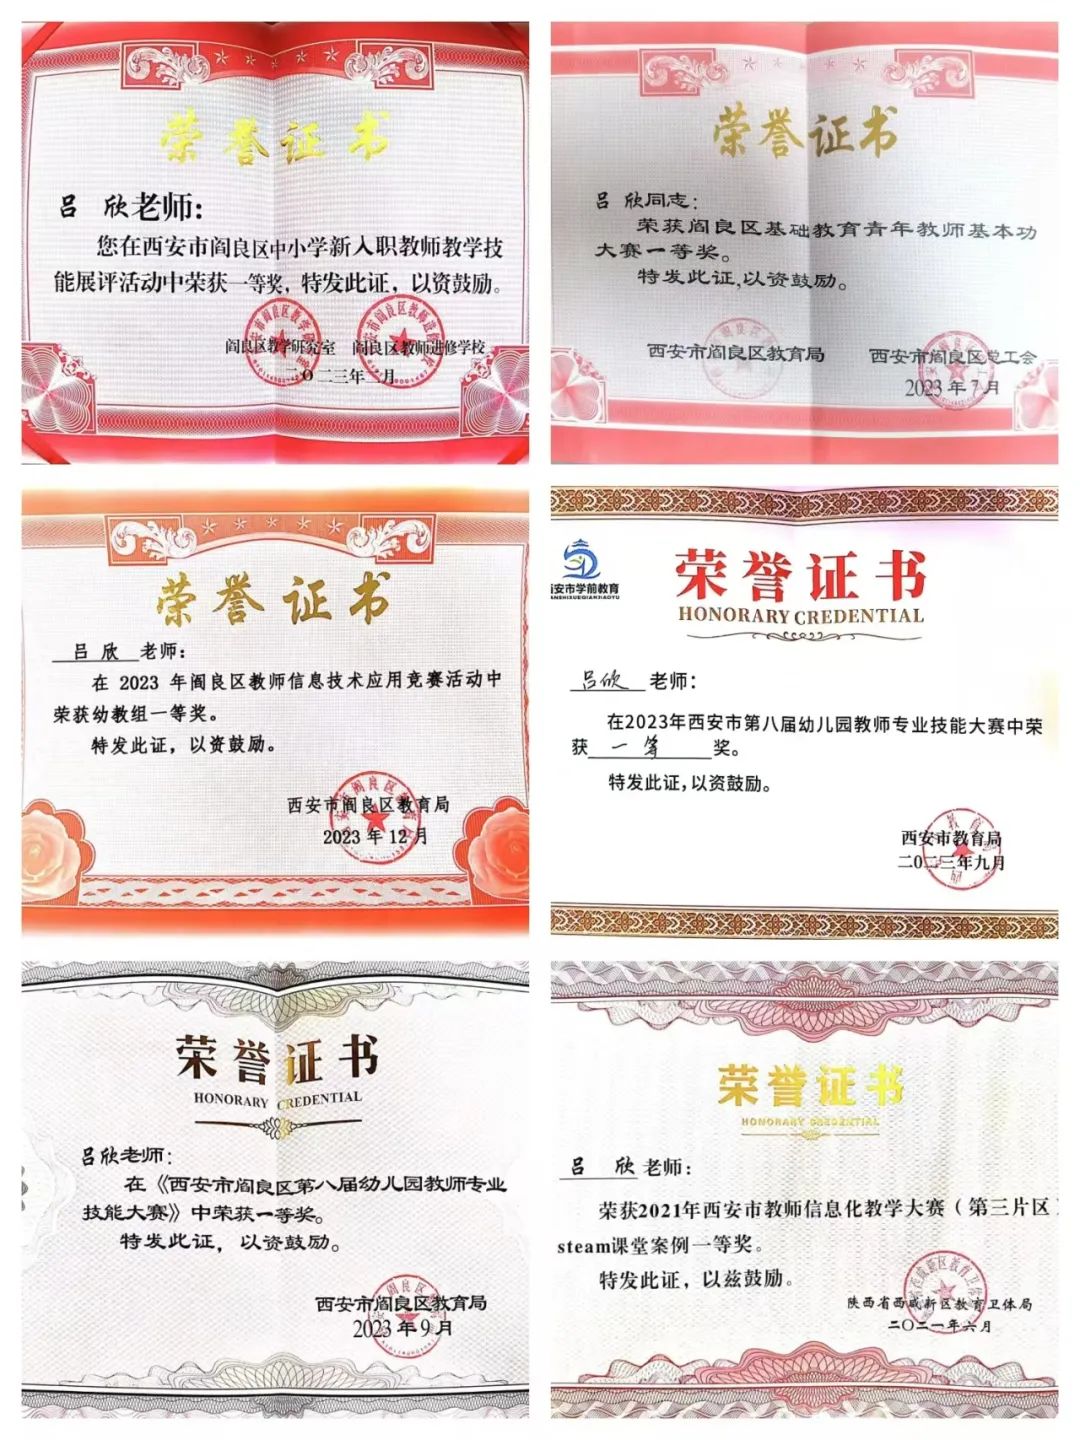 荣誉证书
吕 欣老师:
您在西安市阎良区中小学新入职教师教学技
能展评活动中荣获一等奖, 特发此证, 以资鼓励。
阎良区教学研究室 阎良区教师进修学校
二〇二三年二月
荣誉证书
吕 欣同志:
荣获阎良区基础教育青年教师基本功
大赛一等奖。
特发此证,以资鼓励。
西安市阎良区教育局 西安市阎良区总工会
2023年7月
荣誉证书
吕 欣 老师:
在 2023 年阎良区教师信息技术应用竞赛活动中
荣获幼教组一等奖。
特发此证, 以资鼓励。
西安市阎良区教育局
2023 年 12 月
西安市学前教育
荣誉证书
HONORARY CREDENTIAL
吕欣 老师:
在2023年西安市第八届幼儿园教师专业技能大赛中荣
获 一等 奖。
特发此证,以资鼓励。
西安市教育局
二〇二三年九月
荣誉证书
HONORARY CREDENTIAL
吕欣老师:
在《西安市阎良区第八届幼儿园教师专业
技能大赛》中荣获一等奖。
特发此证, 以资鼓励。
西安市阎良区教育局
2023 年 9 月
荣誉证书
HONORARY CREDENTIAL
吕 欣 老师:
荣获2021年西安市教师信息化教学大赛(第三片区)
steam课堂案例一等奖。
特发此证, 以兹鼓励。
陕西省西咸新区教育卫体局
二〇二一年六月